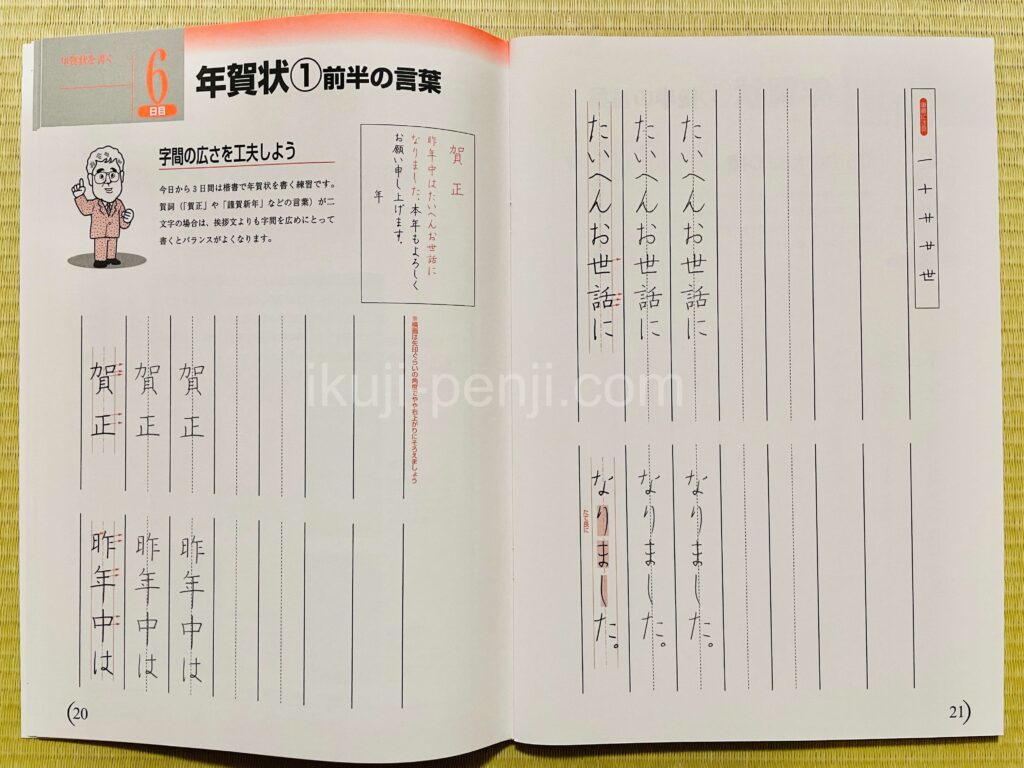 年賀状を書く
6
日目
年賀状①前半の言葉
字間の広さを工夫しよう
今日から3日間は楷書で年賀状を書く練習です。
賀詞(「賀正」や「謹賀新年」などの言葉)が二
文字の場合は、挨拶文よりも字間を広めにとって
書くとバランスがよくなります。
賀正
昨年中はたいへんお世話に
なりました。本年もよろしく
お願い申し上げます。
年
※横画は矢印ぐらいの角度でやや右上がりにそろえましょう
賀正
賀正
賀正
昨年中は
昨年中は
昨年中は
(20
一十廿丗世
たいへんお世話に
たいへんお世話に
たいへんお世話に
なりました。
なりました。
なりました。
21)
ikuji-penji.com